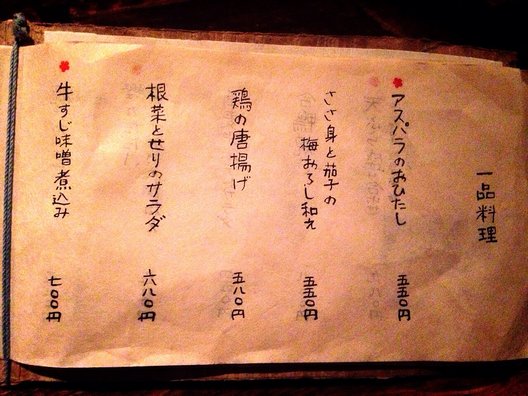 一品料理
アスパラのおひたし 五五〇円
ささ身と茄子の
梅おろし和え 五五〇円
鶏の唐揚げ 五八〇円
根菜とせりのサラダ 六八〇円
牛すじ味噌煮込み 七〇〇円